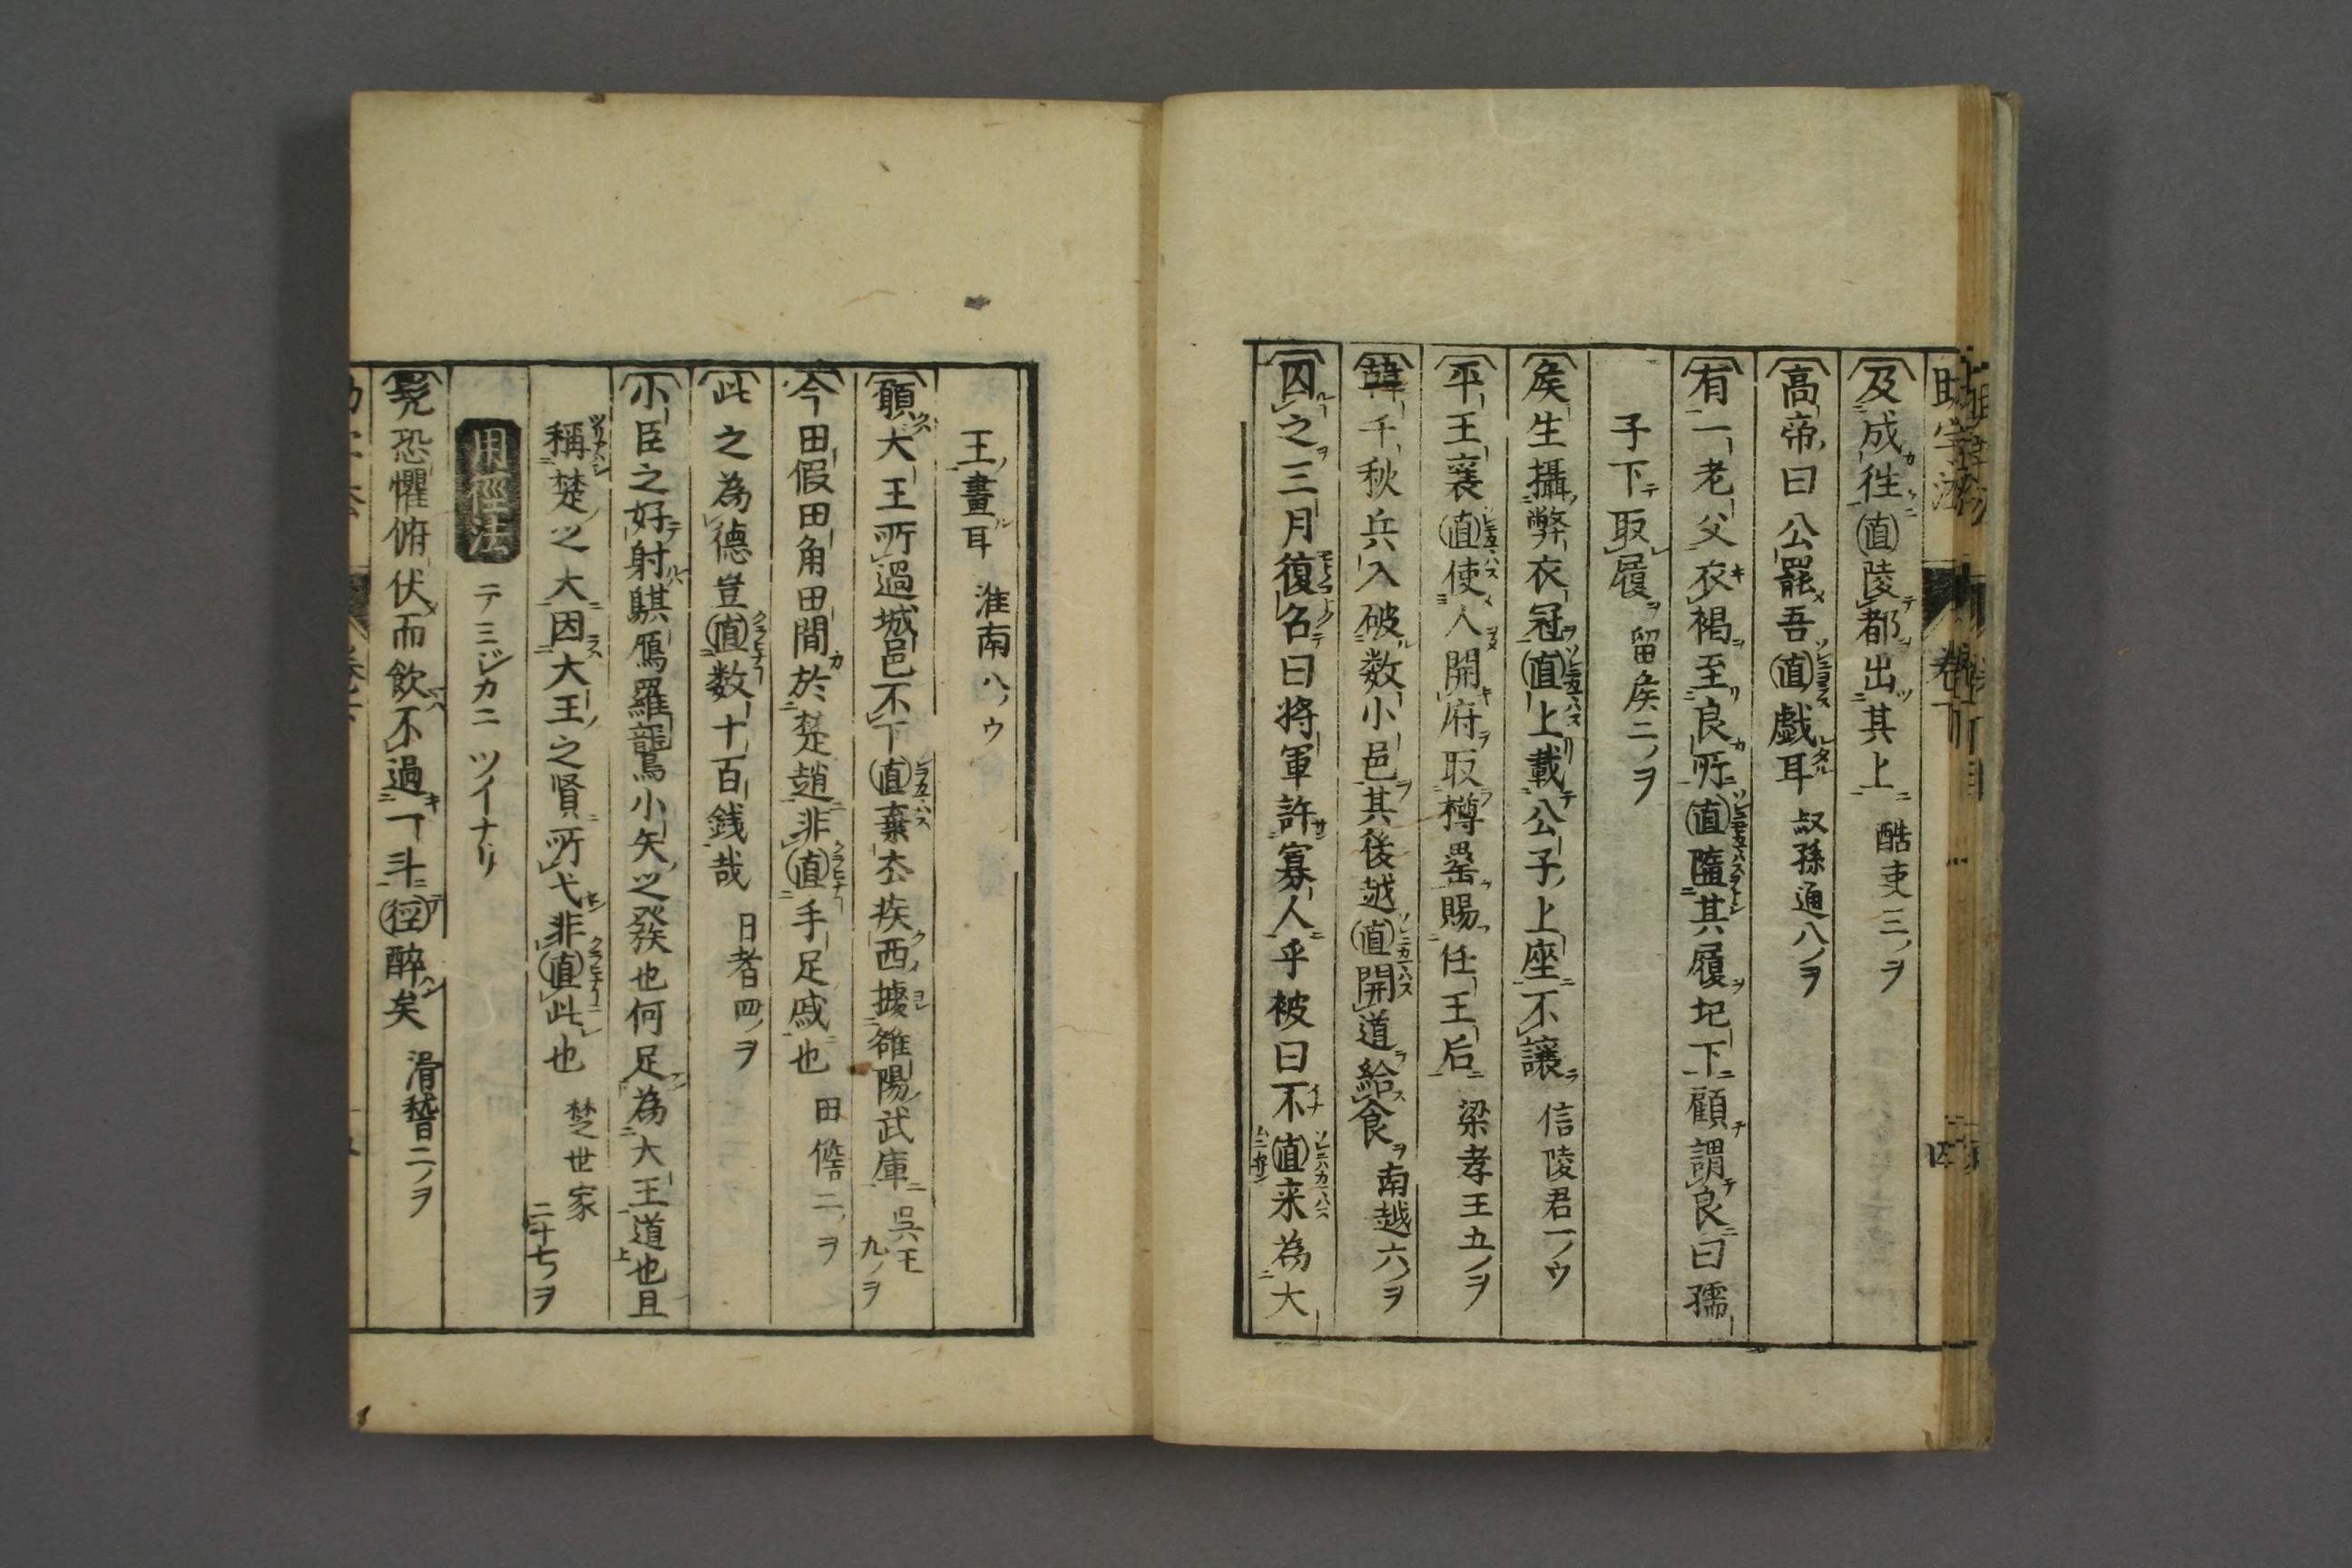 及成徃直陵都出其上 酷吏三ノヲ
高帝曰公罷吾直戯耳 叔孫通八ノヲ
有一老父衣褐至良所直隨其履圯下顧謂良曰孺
子下取履 留矦二ノヲ
矦生攝弊衣冠直上載公子上座不讓 信陵君一ノウ
平王襄直使人開府取樽罍賜任王后 梁孝王五ノヲ
韓千秋兵入破数小邑其後越直開道給食 南越六ノヲ
囚之三月復召曰将軍許寡人乎被曰不直来為大
王畫耳 淮南八ノウ
願大王所過城邑不下直棄厺疾西據雒陽武庫 呉王九ノヲ
今田假田角田間於楚趙非直手足戚也 田儋二ノヲ
此之為德豈直数十百銭哉 日者四ノヲ
小臣之好射鶀鴈羅鸗小矢之發也何足為大王道也且
稱楚之大因大王之賢所弋非直此也 楚世家二十七ノヲ
用徑法 テミジカニ ツイナリ
髠恐懼俯伏而飲不過一斗徑醉矣 滑稽二ノヲ